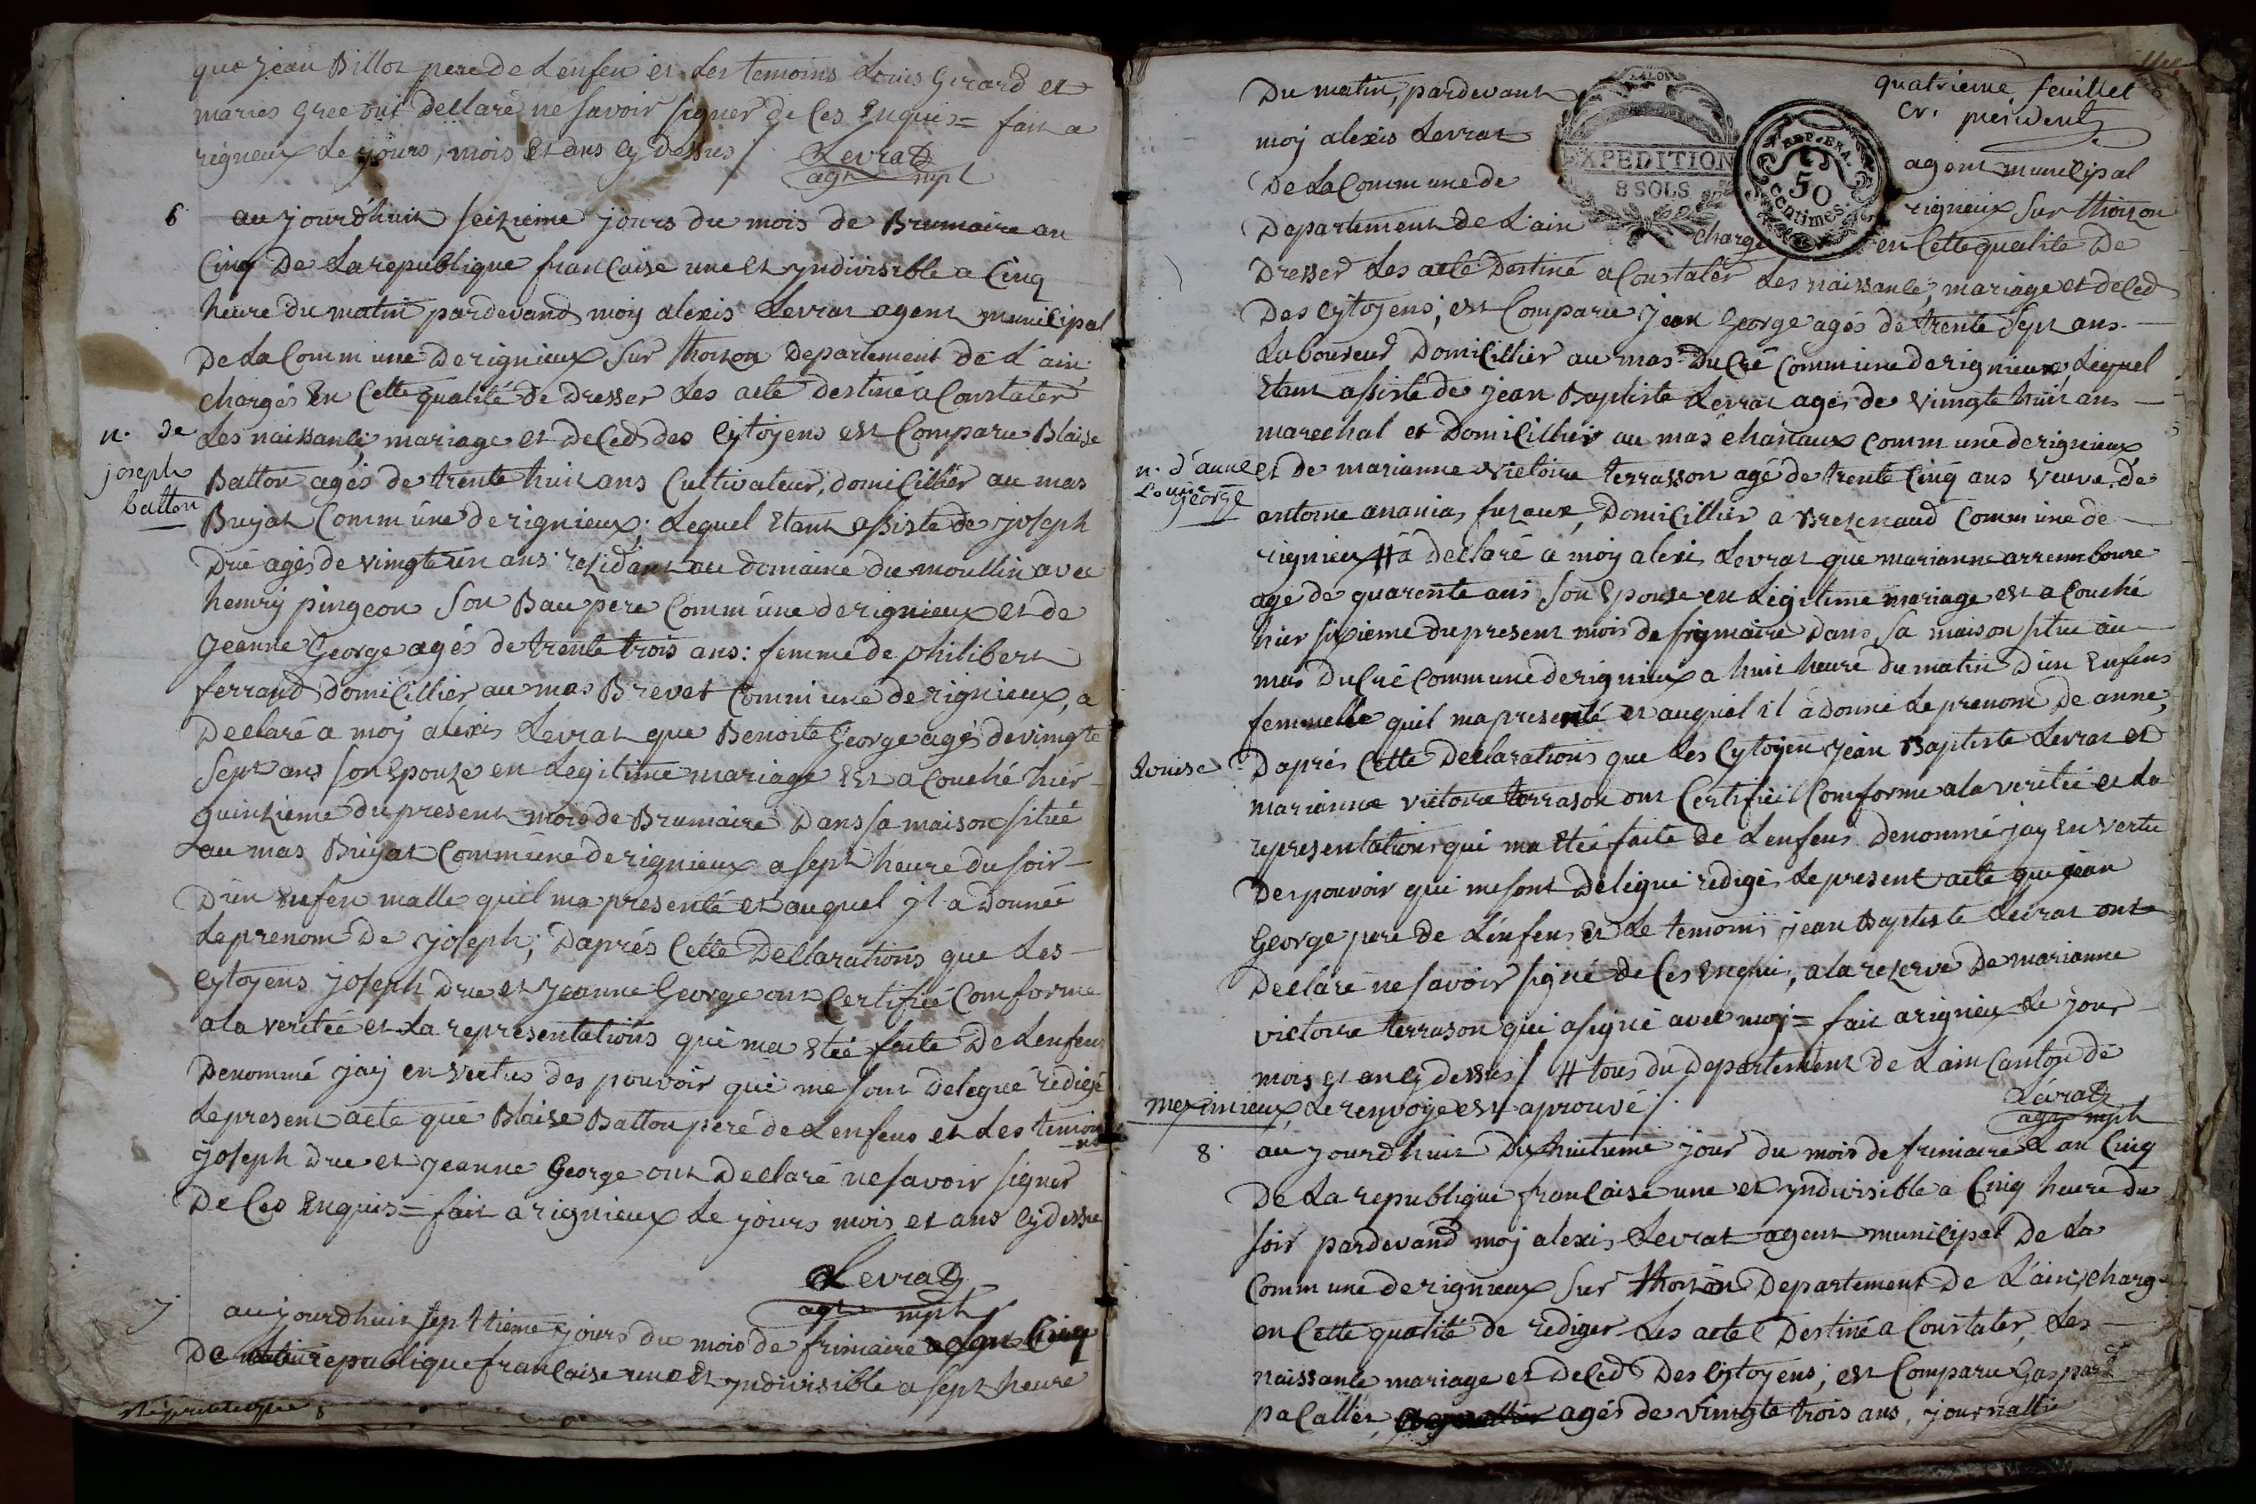 que jean Billot pere de Lenfen et Les temoins Louis Gerard et
maries Gree ont declaré ne savoir signer de Ces Enquis = fait a
rigneux Le jours, mois Et ans Cy dessus /
Levrat
agt mpl
6 au jourd'huit seizieme jours du mois de Brumaire an
Cinq De La republique francaise une Et yndivisible a Cinq
heure du matin pardevand moy alexis Levrat agent municipal
De La Commune De rignieux Sur thoizon Departement de L'ain
chargés En Cette qualité de dresser Les acte destiné a Constater
n. de
joseph
batton
Les naissance, mariage et deced des Cytoyens est Comparu Blaise
Batton agés de trente huit ans Cultivateur, domiCillier au mas
Brujat Commune de rignieux; Lequel Etant assisté de joseph
Drü agés de vimgte un ans residant au domaine du moullin avec
henry pingeon Son Bau pere Commune de rignieux et de
Jeanne George agés de trente trois ans: femme de philibert
ferrand domiCillier au mas Brevet Commune de rignieux, a
Declaré a moy aléxis Levrat que Benoite George agés de vimgte
Sept ans son Epouze en Legitime mariage Est a Couché hiér
quinzieme du present mois de Brumaire Dans sa maison situé
au mas Brujat Commune de rignieux a sept heure du soir
D'un enfen malle qu'il ma presenté et auquel jl a Donnée
Le prenom De joseph; Daprés Cette Dellarations que Les
Cytoyens joseph Dru et Jeanne George ont Certifiée Comforme
a la veritée et La representations qui ma Etée faite De Lenfens
Denommé jaij en vertus des pouvoir qui me sont delegué redigé
Le present acte que Blaise Batton peré de Lenfens et Les temoin
joseph dru et Jeanne George ont Declaré ne savoir signer
De Ces Enquis = fait a rignieux Le jours mois et ans Cy dessu
Levrat
agt mpl
7 au jourdhuit septtieme jours du mois de frimaire Lan Cinq
De republique francaise une Et yndivisible a sept heure
quatrieme feuillet
cr. président
EXPEDITION
8 SOLS
REP. FRA.
50
Centimes
Du matin, pardevant
moy alexis Levrat agent municipal
De La Commune de rigneux Sur thoizon
Departement de L'ain chargé en Cette qualité De
Dresser Les acte Destiné a Constater Les naissance, mariage et deced
Des Cytoyens, est Comparu jean George agés de trente Sept ans
Laboureur DomiCillier au mas Du Cré Commune de rignieux, Lequel
Etant assisté de jean Baptiste Levrat agés de vimgte huit ans
marechal et DomiCillier au mas chanaux Commune de rignieux
n. d'anne
Louise
George
et de marianne victoire terrasson agé de trente Cinq ans veuve de
antoine anania, fuzeaux, DomiCillier a Breznaud Commune de
rignieux # a declaré a moy alexi Levrat que marianne arremboure
agé de quarente ans son Epouse en Legitime mariage est a Couché
hier sixieme du present mois de frimaire Dans sa maison situe au
mas Du Cré Commune de rignieux a huit heure du matin D'un Enfens
femmelle quil ma presenté et auquel il a donné Le prenom de anne
Louise Daprés Cette Dellarations que Les Cytoyen jean Baptiste Levrat et
marianne victoire terrason ont Certifiée Comforme a la veritée et La
representations qui ma Etée faite de Lenfens Denommé jay en vertu
Des pouvoir qui me sont Delegué redigé Le present acte que jean
George pere de Lenfens et Le temoins jean Baptiste Levrat ont
Declaré ne savoir signé de Ces Enqui, a la rezerve De marianne
victoire terrason qui a signé avec moy = fait a rignieu Le jour
mois et an Cy dessus / # tous du Departement de Lain Canton de
meximieux, Le renvoye est aprouvé /.
Levrat
agt mpl
8. au jourd'huit Dixhuitieme jour du mois de frimaire Lan Cinq
De La republique francaise une et yndivisible a Cinq heure du
soir pardevand moy alexis Levrat agent municipal De La
Commune de rignieux Sur thoizon Departement De L'ain, chargé
en Cette qualité de rediger Les acte Destiné a Constater, Les
naissance mariage et DeCed Des Cytoyens; est Comparu Gaspard
paCallet, agés de vimgte trois ans, journallié